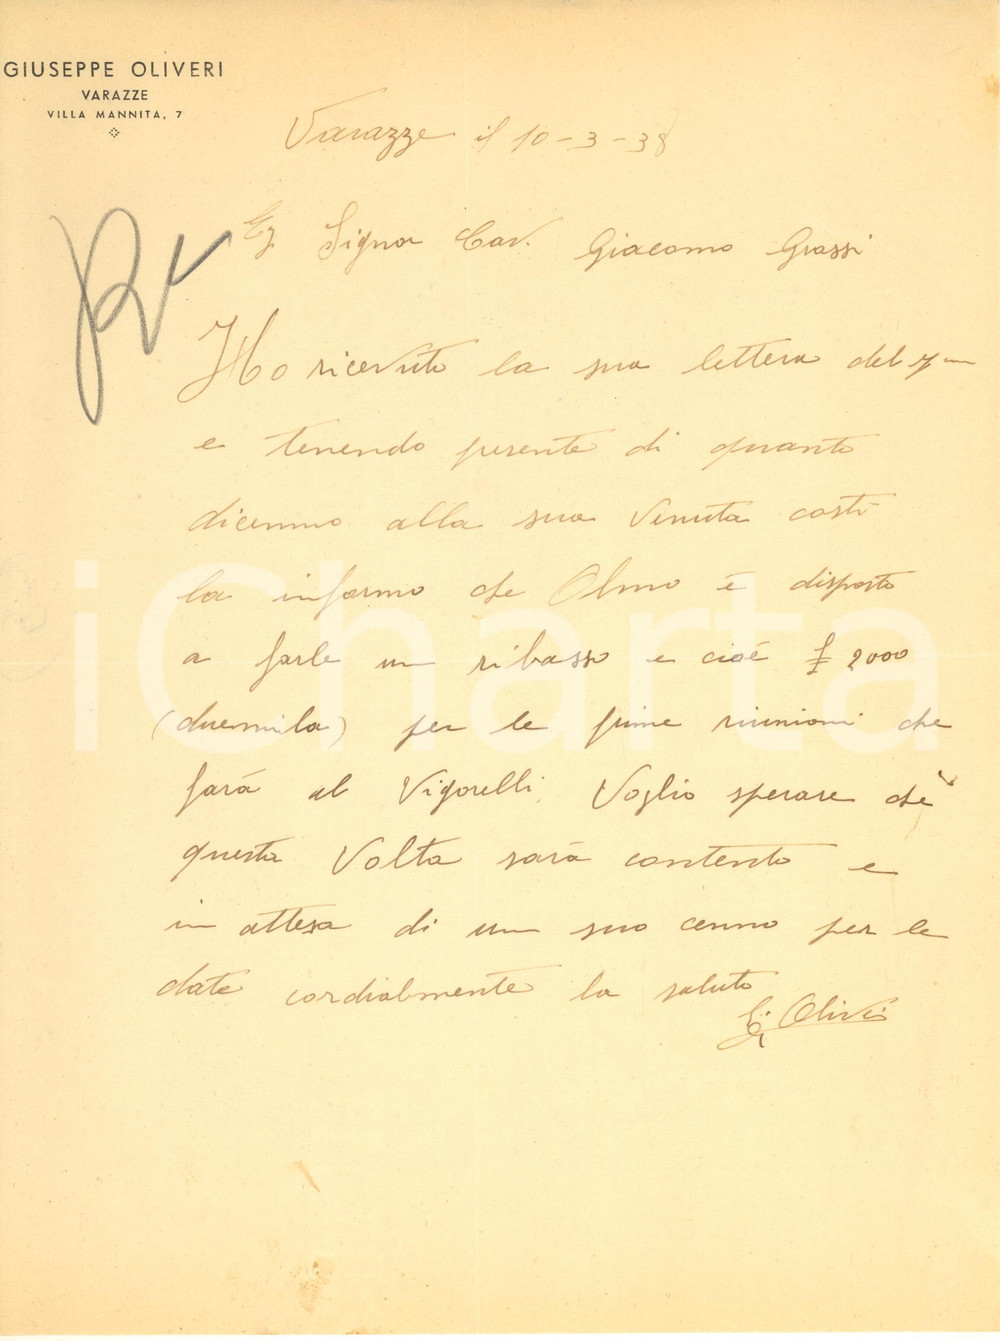 GIUSEPPE OLIVERI
VARAZZE
VILLA MANNITA, 7
Varazze il 10-3-38
Eg Signor Cav. Giacomo Grassi
Ho ricevuto la sua lettera del
e tenendo presente di quanto
dicemmo alla sua Venuta costì
la informo che Olmo è disposto
a farle un ribasso e cioé £ 2000
(duemila) per le prime riunioni che
farà al Vigorelli. Voglio sperare che
questa Volta sarà contento e
in attesa di un suo cenno per le
date cordialmente la saluto
G. Oliveri
iCharta